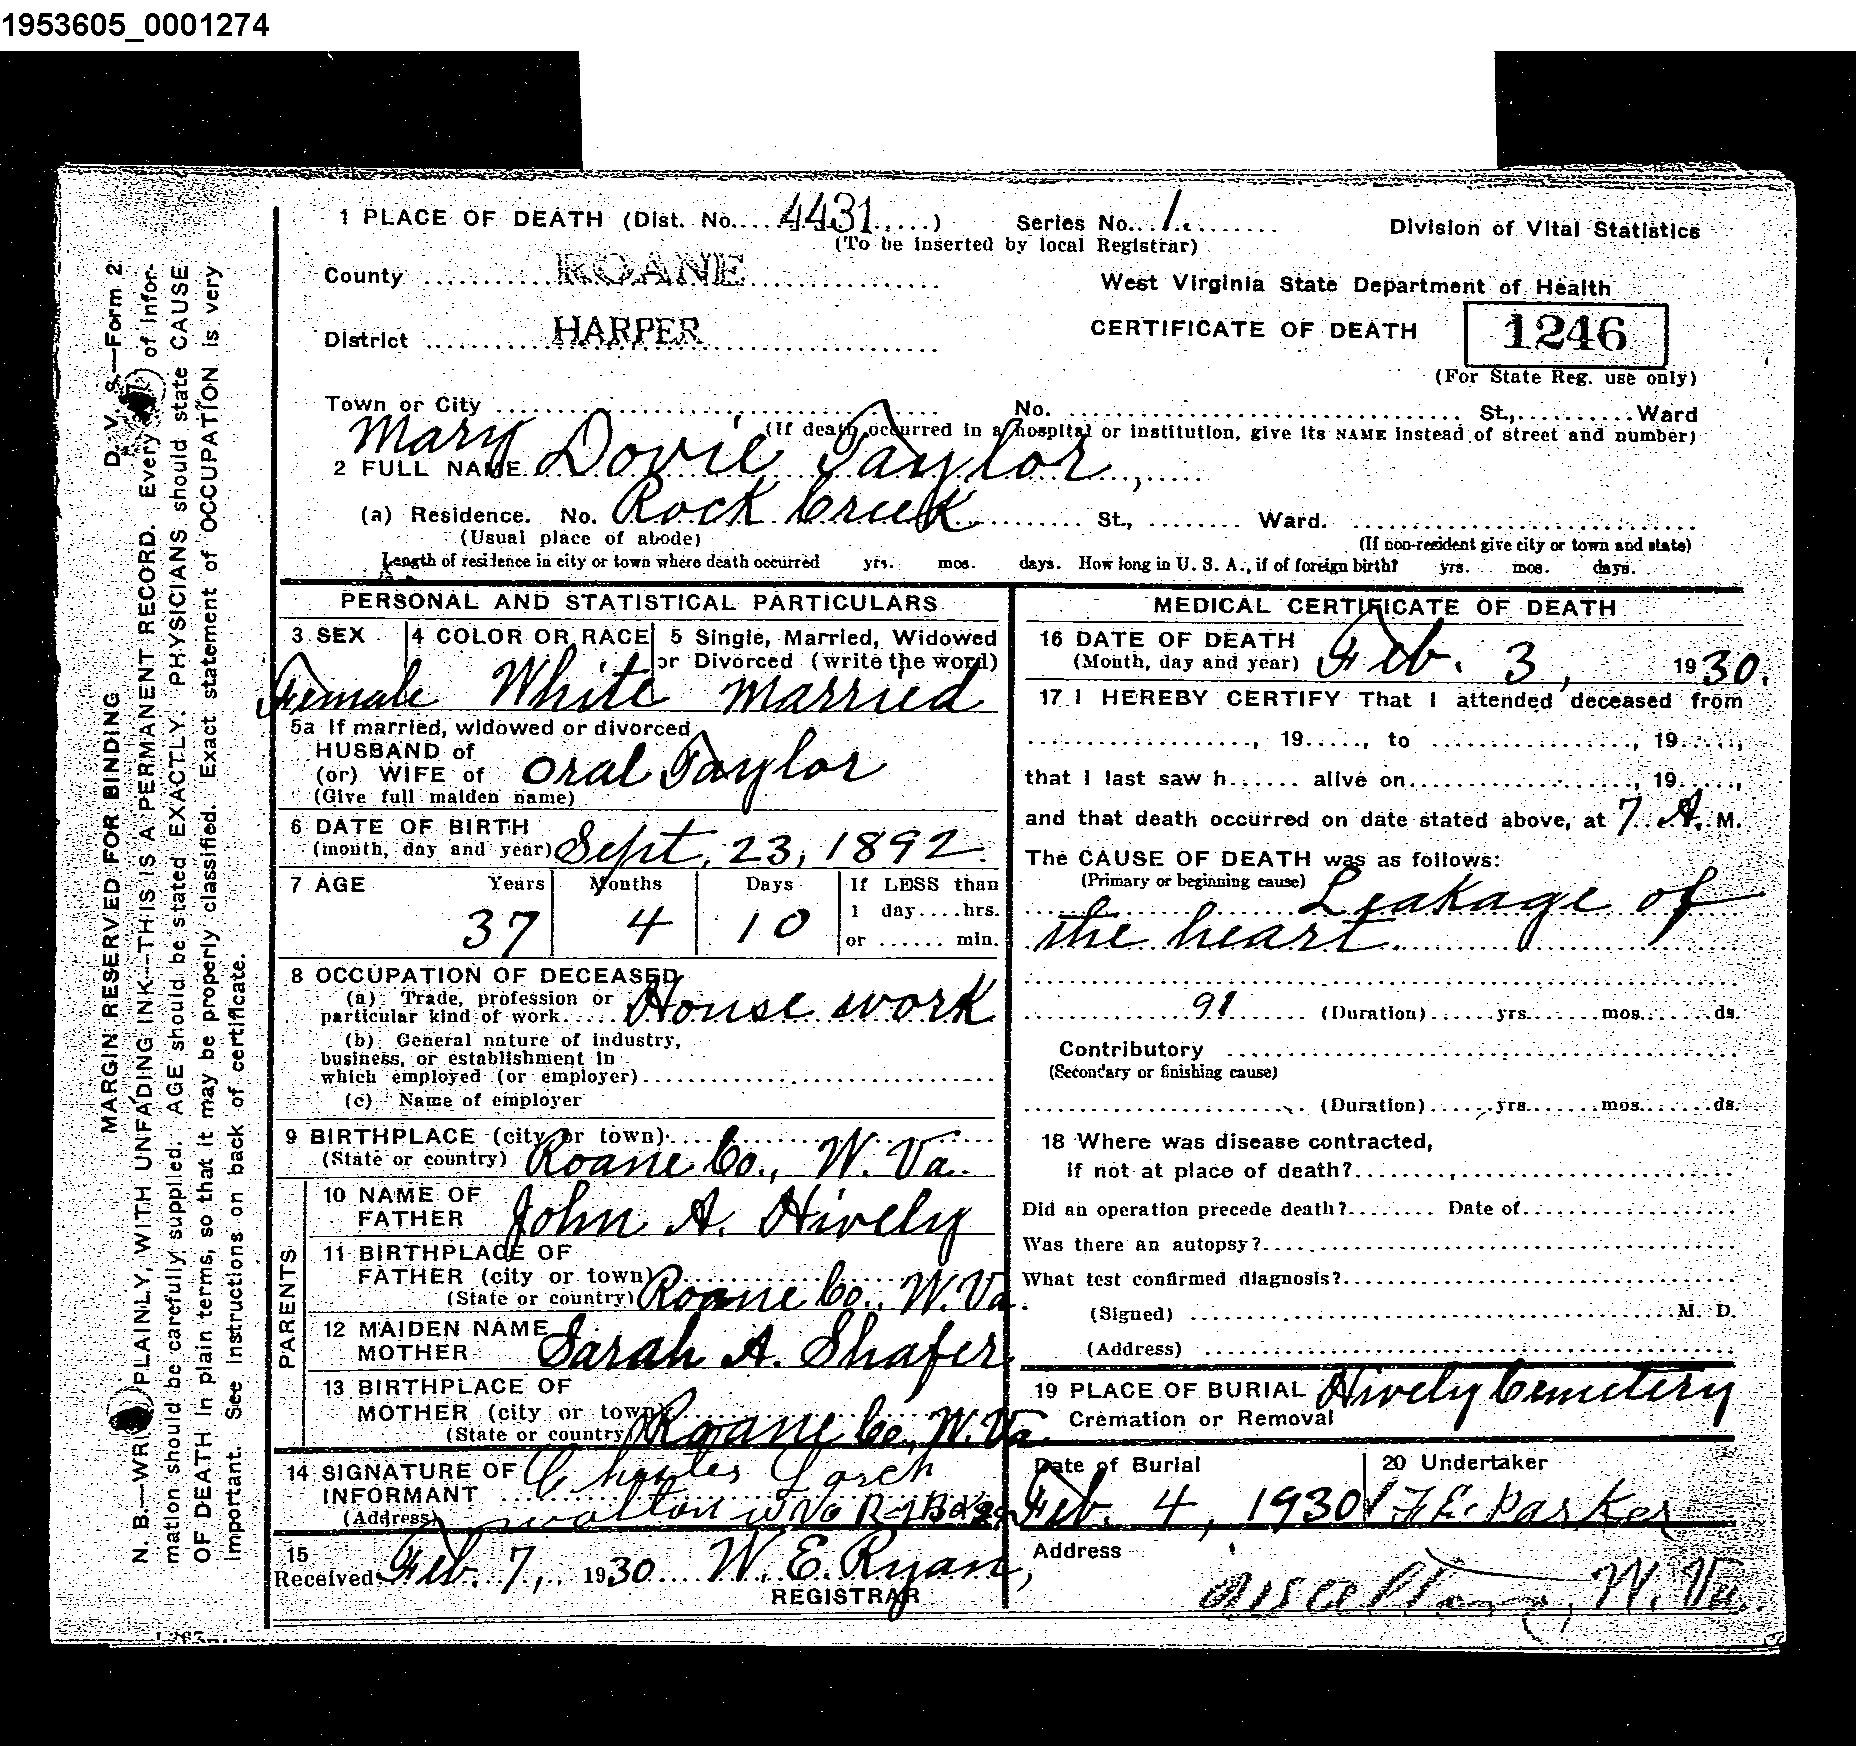 1953605_0001274
1 PLACE OF DEATH (Dist. No. 4431 ) Series No. 1 Division of Vital Statistics
(To be inserted by local Registrar)
County ROANE
West Virginia State Department of Health
District HARPER
CERTIFICATE OF DEATH 1246
(For State Reg. use only)
Town or City No. St., Ward
(If death occurred in a hospital or institution, give its NAME instead of street and number)
2 FULL NAME Mary Dovie Taylor,
(a) Residence. No. Rock Creek St., Ward.
(Usual place of abode) (If non-resident give city or town and state)
Length of residence in city or town where death occurred yrs. mos. days. How long in U. S. A., if of foreign birth? yrs. mos. days.
PERSONAL AND STATISTICAL PARTICULARS
3 SEX 4 COLOR OR RACE 5 Single, Married, Widowed
or Divorced (write the word)
Female White Married
5a If married, widowed or divorced
HUSBAND of
(or) WIFE of Oral Taylor
(Give full maiden name)
6 DATE OF BIRTH
(month, day and year) Sept. 23, 1892.
7 AGE Years Months Days If LESS than
1 day....hrs.
37 4 10
or ...... min.
8 OCCUPATION OF DECEASED
(a) Trade, profession or
particular kind of work House work
(b) General nature of industry,
business, or establishment in
which employed (or employer)
(c) Name of employer
9 BIRTHPLACE (city or town)
(State or country) Roane Co., W. Va.
PARENTS
10 NAME OF
FATHER John A. Hively
11 BIRTHPLACE OF
FATHER (city or town)
(State or country) Roane Co., W. Va.
12 MAIDEN NAME
MOTHER Sarah A. Shafer
13 BIRTHPLACE OF
MOTHER (city or town)
(State or country) Roane Co., W. Va.
14 SIGNATURE OF
INFORMANT Charles
(Address) Walton W Va
15
Received Feb. 7, 1930 W. E. Ryan,
REGISTRAR
MEDICAL CERTIFICATE OF DEATH
16 DATE OF DEATH
(Month, day and year) Feb. 3, 1930.
17 I HEREBY CERTIFY That I attended deceased from
, 19....., to , 19.....,
that I last saw h...... alive on , 19.....,
and that death occurred on date stated above, at 7 A. M.
The CAUSE OF DEATH was as follows:
(Primary or beginning cause) Leakage of
the heart
91 (Duration) yrs. mos. ds.
Contributory
(Secondary or finishing cause)
(Duration) yrs. mos. ds.
18 Where was disease contracted,
if not at place of death?
Did an operation precede death? Date of
Was there an autopsy?
What test confirmed diagnosis?
(Signed) M. D.
(Address)
19 PLACE OF BURIAL Hively Cemetery
Cremation or Removal
Date of Burial 20 Undertaker
Feb. 4, 1930 F E. Parker
Address
W. Va.
D. V. S.—Form 2
MARGIN RESERVED FOR BINDING
N. B.—WRITE PLAINLY, WITH UNFADING INK—THIS IS A PERMANENT RECORD. Every item of infor-
mation should be carefully supplied. AGE should be stated EXACTLY. PHYSICIANS should state CAUSE
OF DEATH in plain terms, so that it may be properly classified. Exact statement of OCCUPATION is very
important. See instructions on back of certificate.